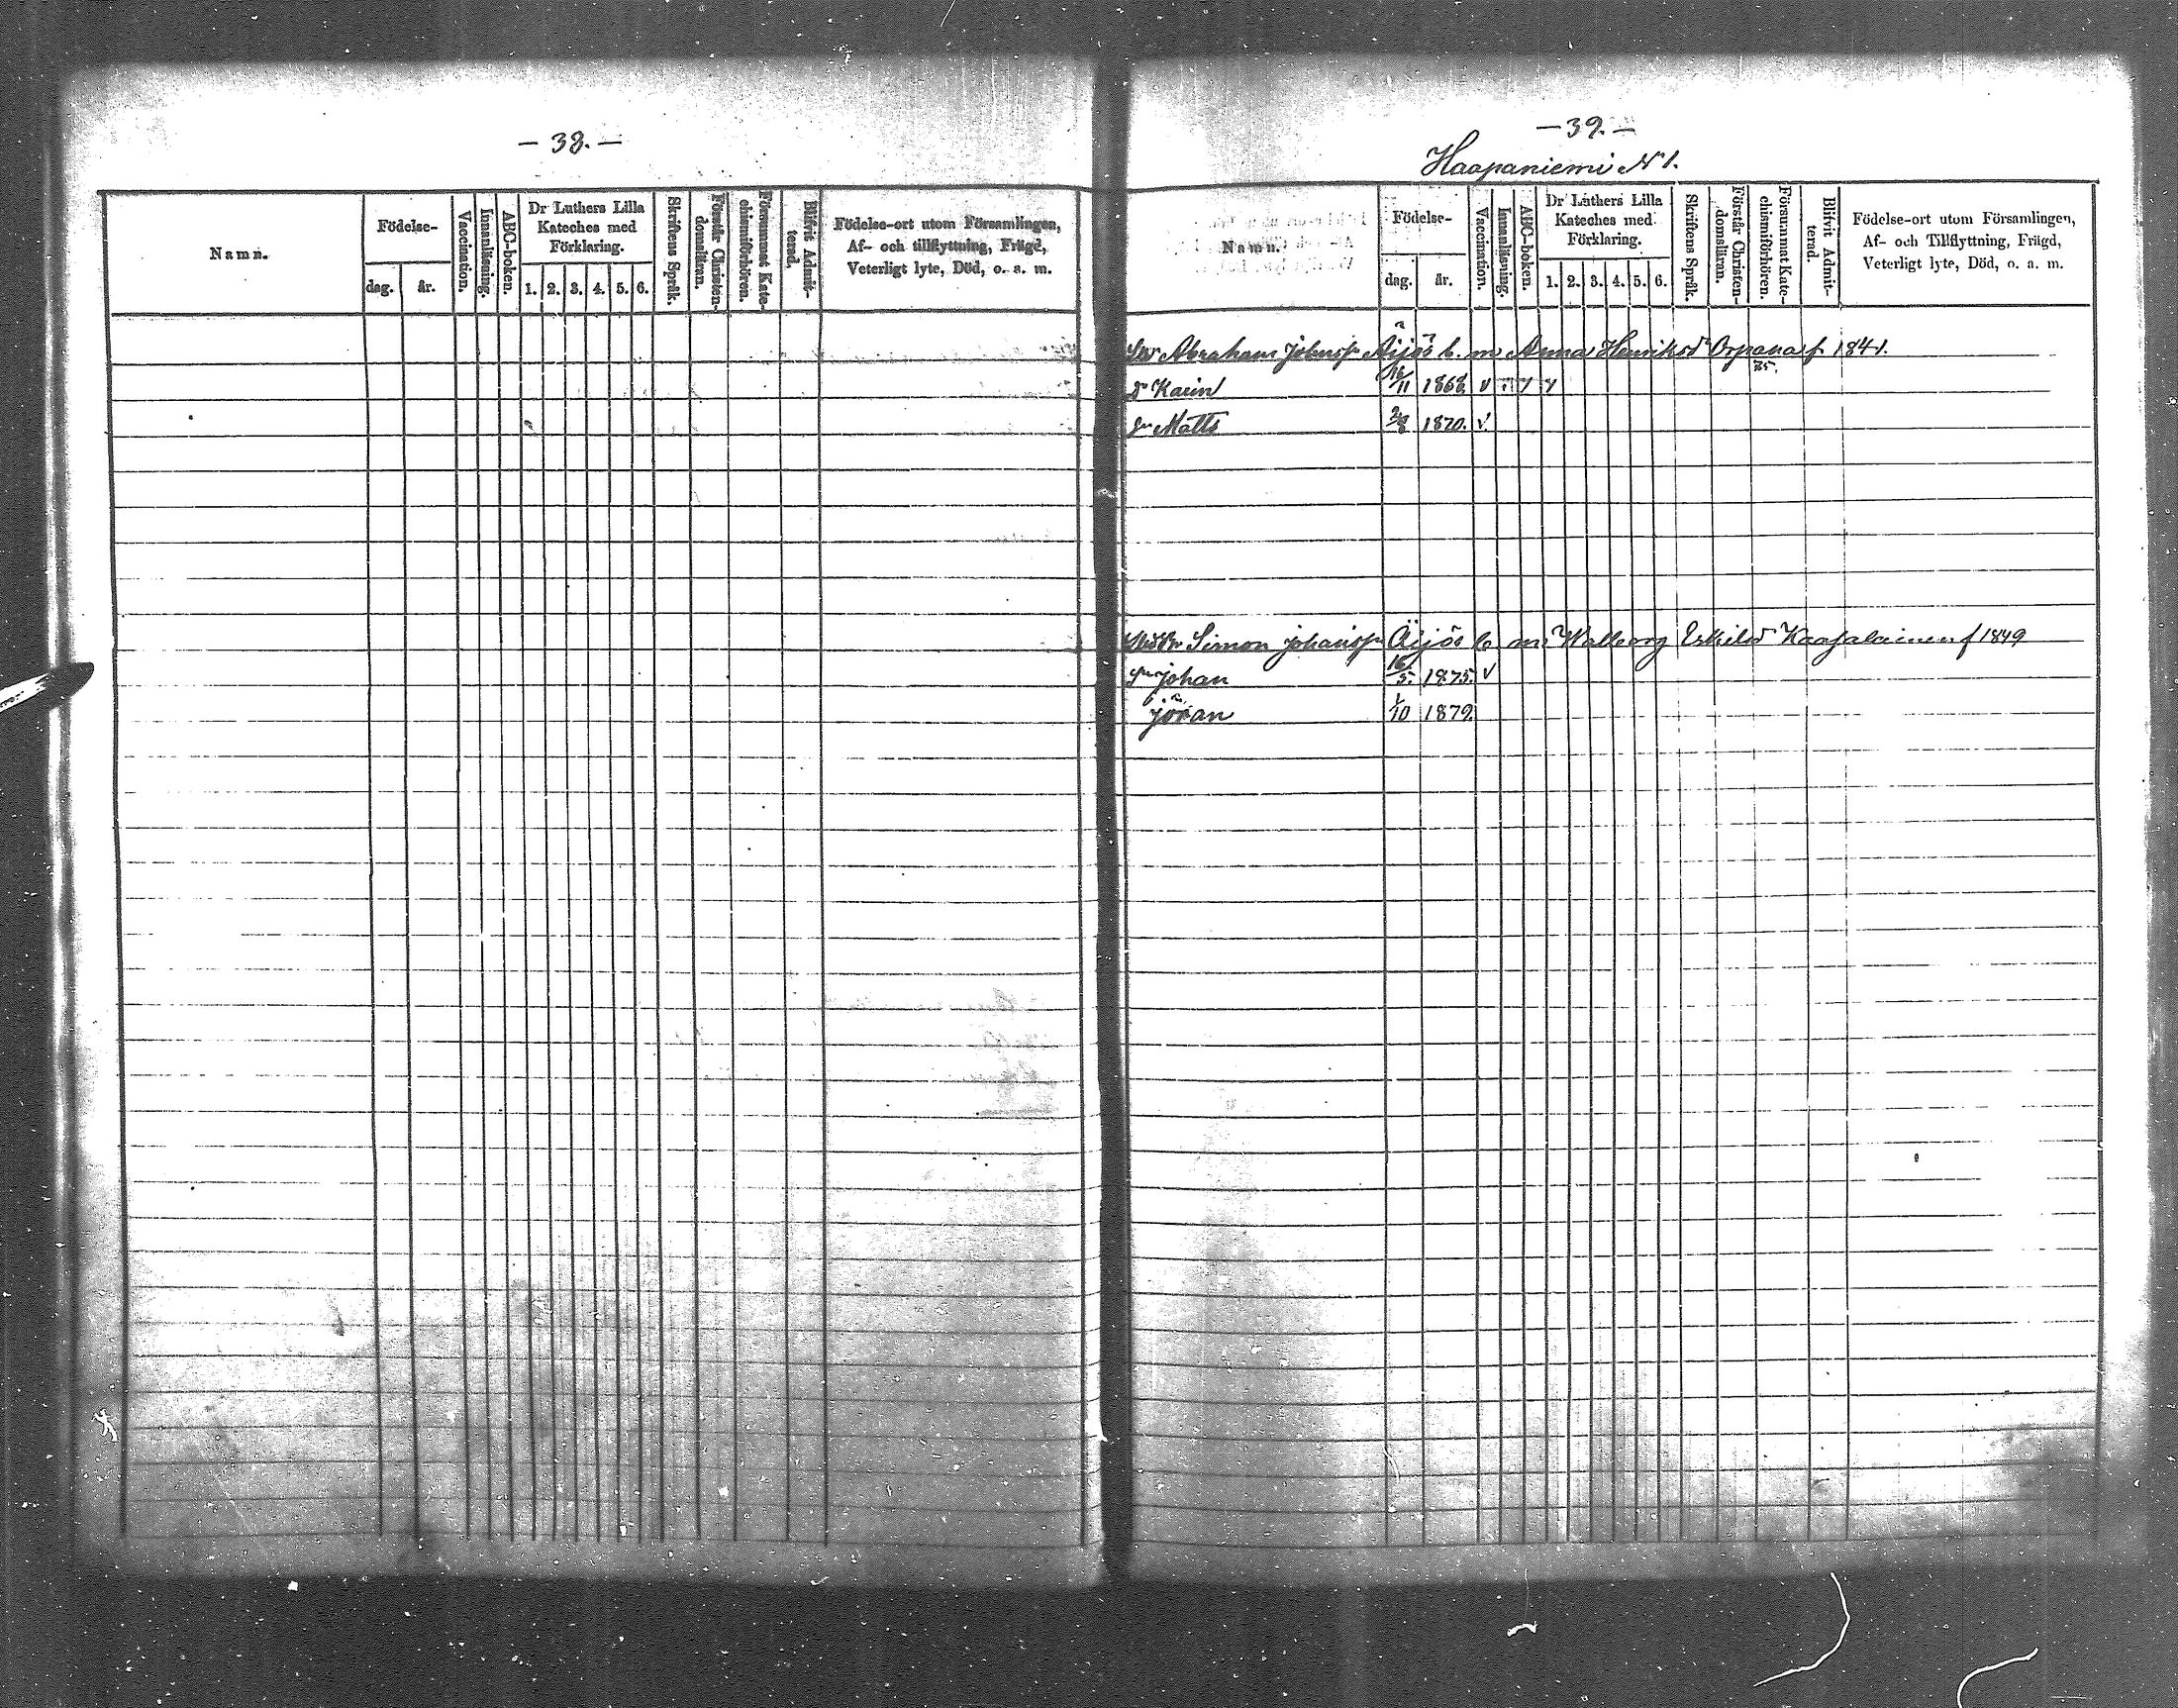 — 38. —
Namn.
Födelse-
dag.
år.
Vaccination.
Innanläsning.
ABC-boken.
Dr Luthers Lilla
Kateches med
Förklaring.
1. 2. 3. 4. 5. 6.
Skriftens Språk.
Förstår Christen-
domsläran.
Försummat Kate-
chismiförhören.
Blifvit Admit-
terad.
Födelse-ort utom Församlingen,
Af- och tillflyttning, Frägd,
Veterligt lyte, Död, o. a. m.
— 39. —
Haapaniemi N 1.
Namn.
Födelse-
dag.
år.
Vaccination.
Innanläsning.
ABC-boken.
Dr Luthers Lilla
Kateches med
Förklaring.
1. 2. 3. 4. 5. 6.
Skriftens Språk.
Förstår Christen-
domsläran.
Försummat Kate-
chismiförhören.
Blifvit Admit-
terad.
Födelse-ort utom Församlingen,
Af- och Tillflyttning, Frägd,
Veterligt lyte, Död, o. a. m.
Abraham Johnsf. Äijös b. m Anna Henriksd Orpana f 1841.
75.
Dr Karin 16/11 1868. v
Sn Matts 2/8 1870. v
Simon Johansf Äijös b m Walborg Eskilsd Kaapalainen f 1849
Sn Johan 16/5. 1875. v
Jöran 1/10 1879.